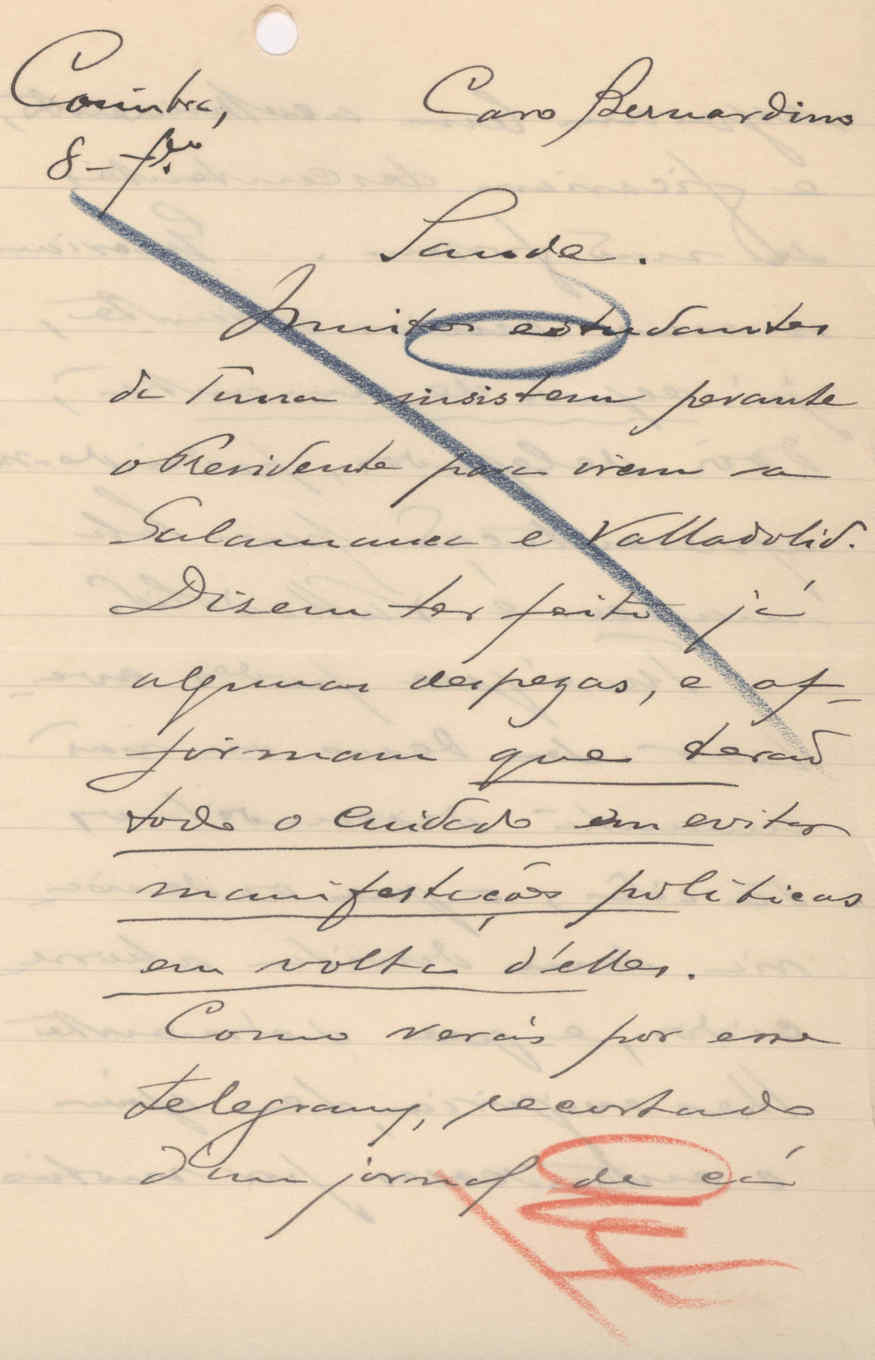 Coimbra,
8 - fev.ro
Caro Bernardino
Saude.
Muitos estudantes
da Tuna insistem perante
o Presidente para irem a
Salamanca e Valladolid.
Dizem ter feito já
algumas despezas, e af-
firmam que terão
todo o cuidado em evitar
manifestações politicas
em volta d'elles.
Como verás por esse
telegramma, recortado
d'um jornal de cá